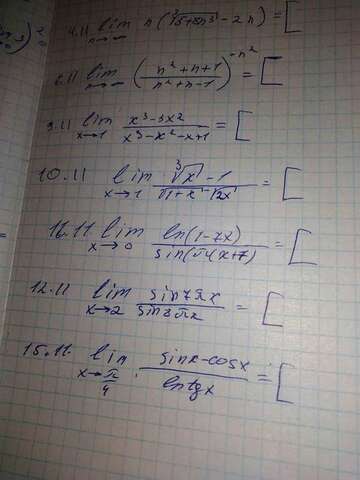 4.11 lim n→∞ n(∛(5+8n³) - 2n) = [
6.11 lim n→∞ ((n²+n+1)/(n²+n-1))^(-n²) = [
9.11 lim x→1 (x³-3x2)/(x³-x²-x+1) = [
10.11 lim x→1 (∛x - 1)/(√(1+x) - √(2x)) = [
11.11 lim x→0 ln(1-7x)/sin(π(x+7) = [
12.11 lim x→2 sin7πx/sin8πx = [
15.11. lim x→π/4 (sinx-cosx)/lntgx = [